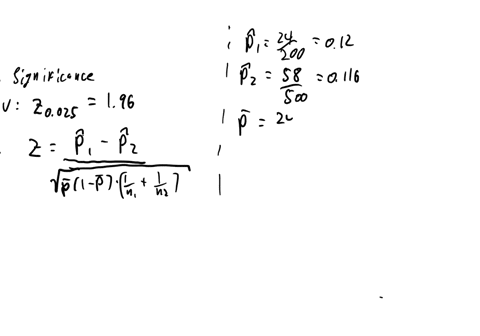 Significance
V: Z_{0.025} = 1.96
Z = \frac{\hat{p}_1 - \hat{p}_2}{\sqrt{\bar{p}(1-\bar{p})·(\frac{1}{n_1} + \frac{1}{n_2})}}
\hat{p}_1 = \frac{24}{200} = 0.12
\hat{p}_2 = \frac{58}{500} = 0.116
\bar{p} = 24